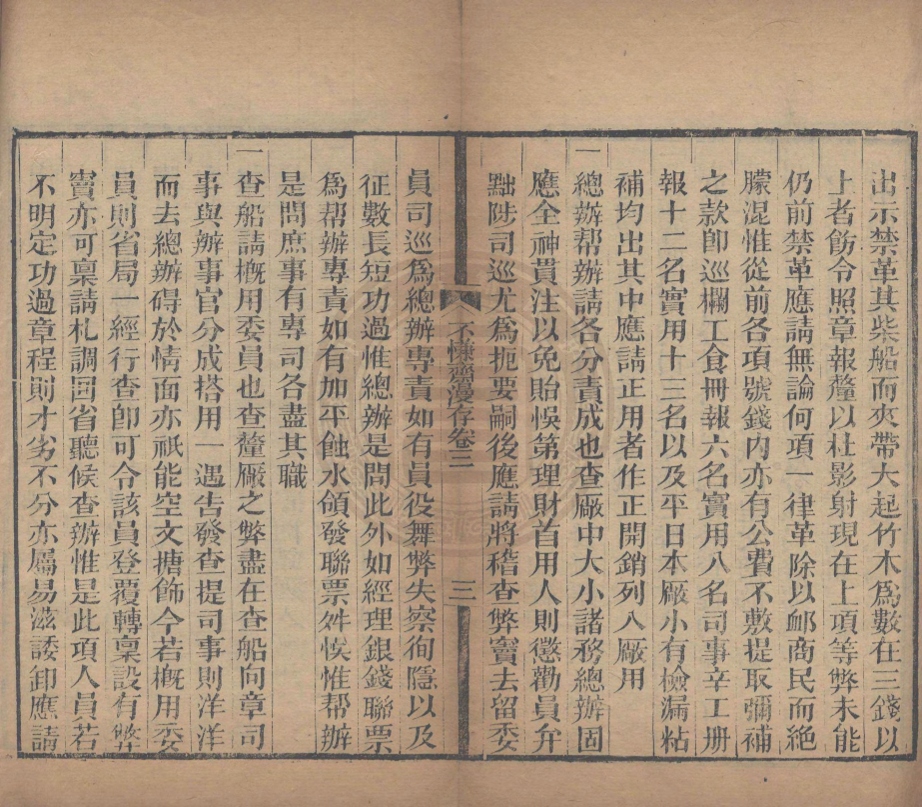 出示禁革其柴船而夾帶大起竹木爲數在三錢以
上者飭令照章報釐以杜影射現在上項等弊未能
仍前禁革應請無論何項一律革除以䘏商民而絕
朦混惟從前各項號錢內亦有公費不敷提取彌補
之款卽巡欄工食冊報六名實用八名司事辛工册
報十二名實用十三名以及平日本廠小有檢漏粘
補均出其中應請正用者作正開銷列入廠用
一總辦帮辦請各分責成也查廠中大小諸務總辦固
應全神貫注以免貽悞第理財首用人則懲勸員弁
黜陟司巡尤爲扼要嗣後應請將稽查弊竇去留委
不慊齋漫存卷三
三
員司巡爲總辦專責如有員役舞弊失察徇隱以及
征數長短功過惟總辦是問此外如經理銀錢聯票
爲帮辦專責如有加平蝕水領發聯票舛悞惟帮辦
是問庶事有專司各盡其職
一查船請槪用委員也查釐廠之弊盡在查船向章司
事與辦事官分成搭用一遇告發查提司事則洋洋
而去總辦碍於情面亦祇能空文搪飾今若槪用委
員則省局一經行查卽可令該員登覆轉稟設有弊
竇亦可稟請札調囘省聽候查辦惟是此項人員若
不明定功過章程則才劣不分亦屬易滋諉卸應請